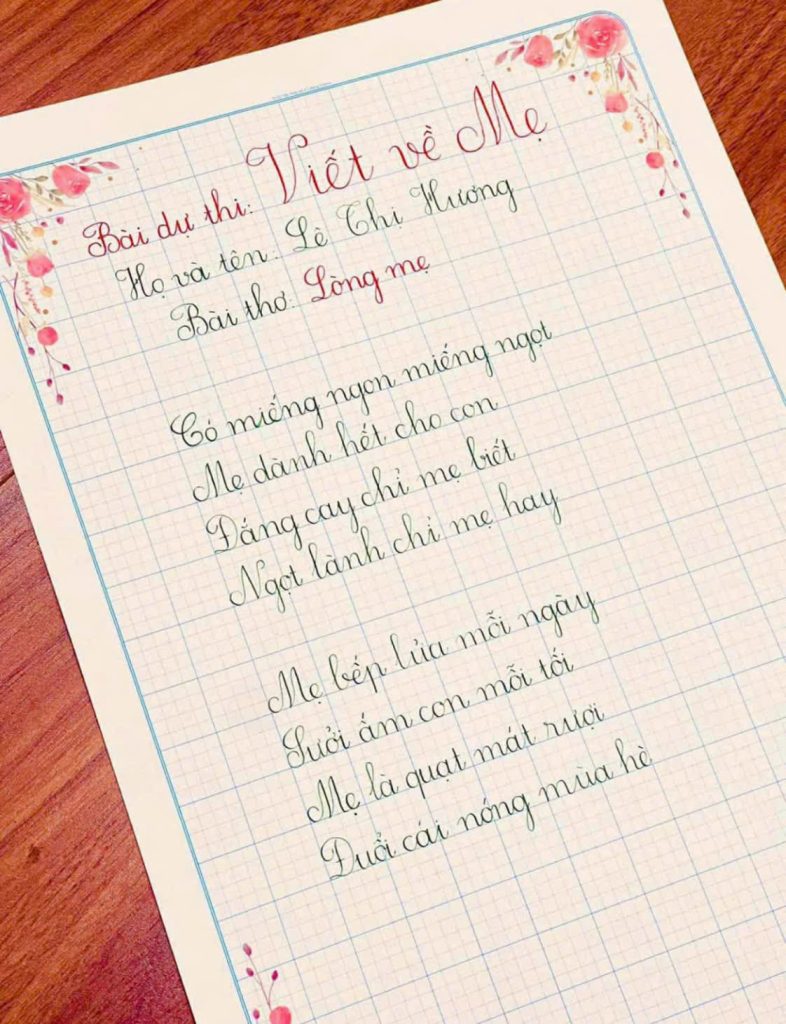 Bài dự thi: Viết về Mẹ
Họ và tên: Lê Thị Hương
Bài thơ: Lòng mẹ
Có miếng ngon miếng ngọt
Mẹ dành hết cho con
Đắng cay chỉ mẹ biết
Ngọt lành chỉ mẹ hay
Mẹ bếp lửa mỗi ngày
Sưởi ấm con mỗi tối
Mẹ là quạt mát rượi
Đuổi cái nóng mùa hè